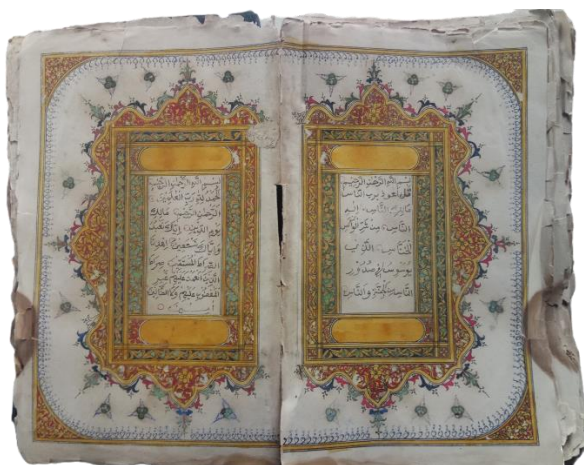 بسم الله الرحمن الرحيم
قل اعوذ برب الناس
ملك الناس اله
الناس من شر
الخناس الذي
يوسوس في صدور
الناس من الجنة والناس
بسم الله الرحمن الرحيم
الحمد لله رب العلمين
الرحمن الرحيم مالك
يوم الدين اياك نعبد
واياك نستعين اهدنا
الصراط المستقيم صراط
الذين انعمت عليهم غير
المغضوب عليهم ولا الضالين
امين